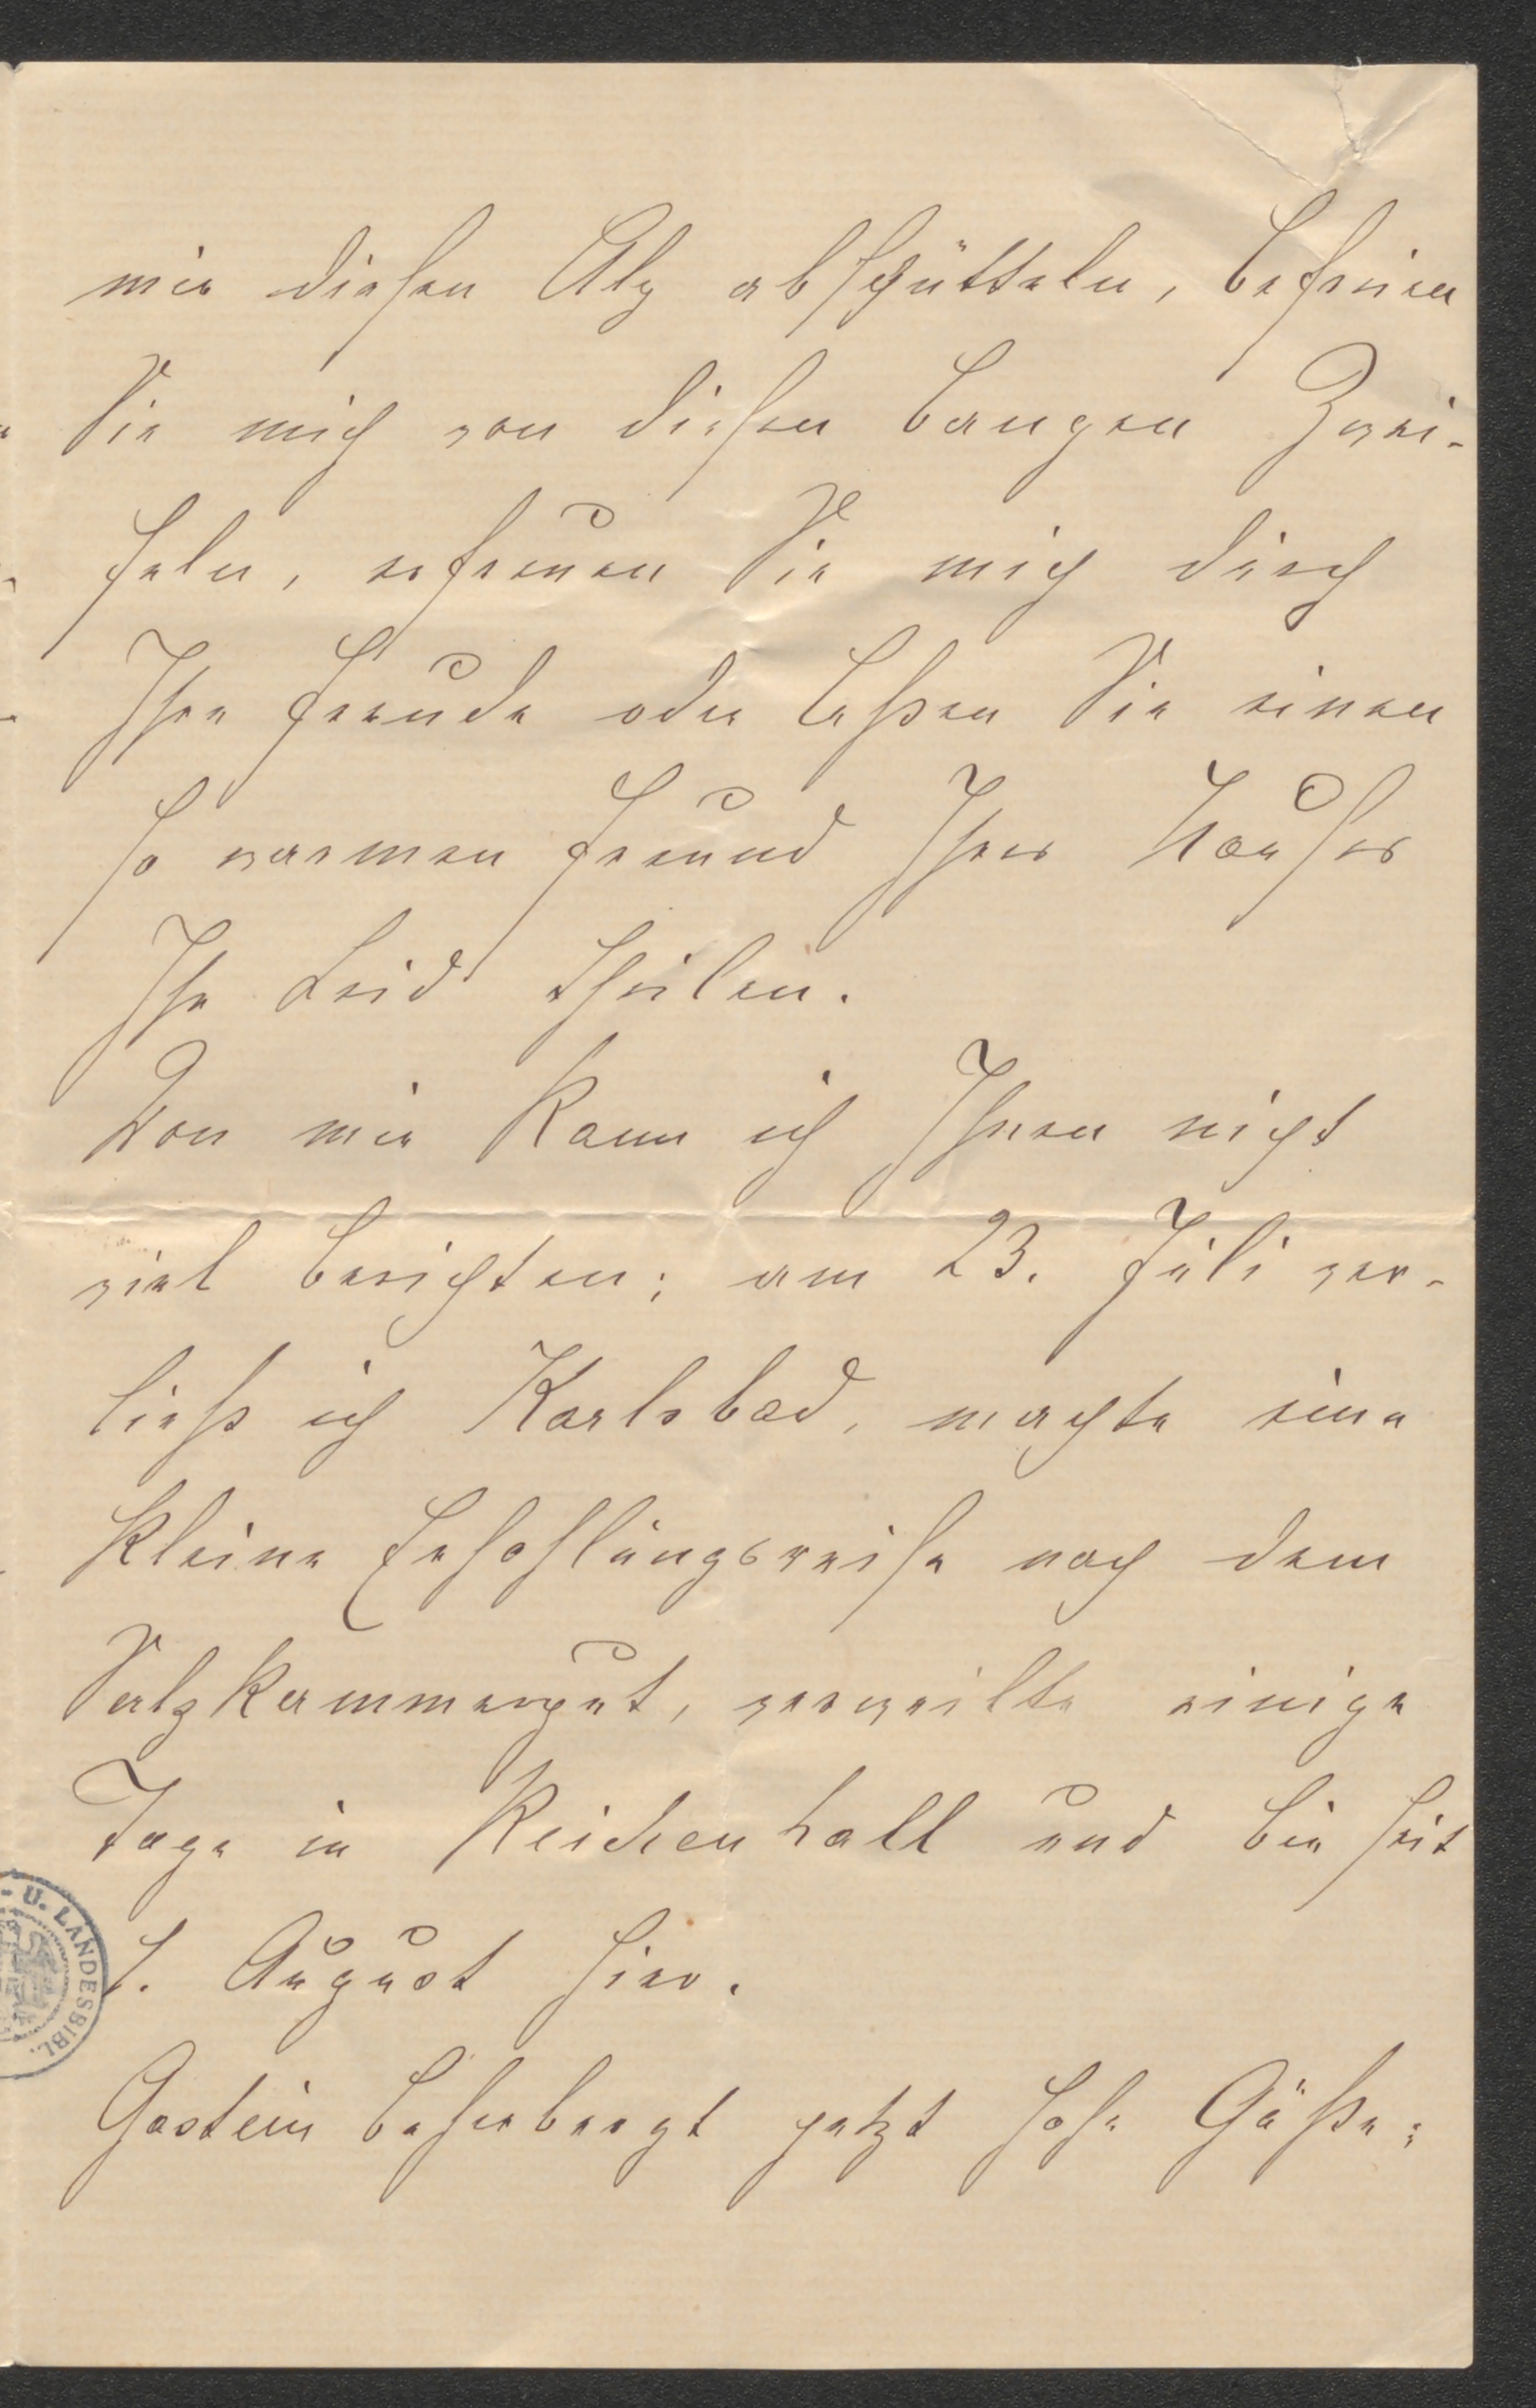 mir diesen Alp abschütteln, befreien
Sie mich von diesen bangen Zwei-
feln, erfreuen Sie mich durch
Ihre Freude oder laßen Sie einen
so warmen Freund Ihres Hauses
Ihr Leid theilen.
Von mir kann ich Ihnen nicht
viel berichten; am 23. Juli ver-
ließ ich Karlsbad, machte eine
kleine Erhohlungsreise nach dem
Salzkammergut, verweilte einige
Tage in Reichenhall und bin seit
1. August hier.
Gastein beherbergt jetzt hohe Gäste;
U. LANDESBIBL.